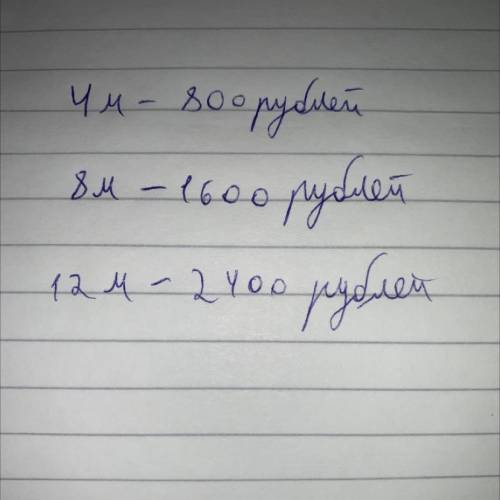 4м - 800 рублей
8м - 1600 рублей
12м - 2400 рублей